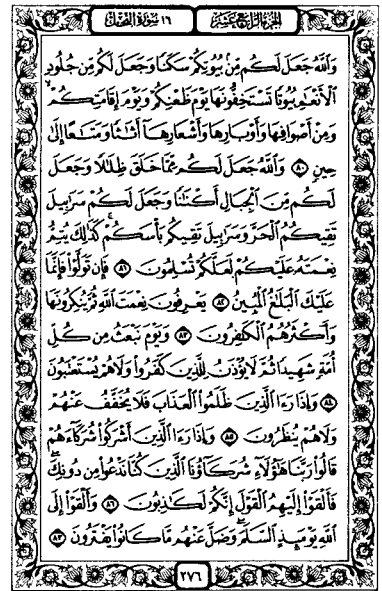 الجزء الرابع عشر
١٦ سورة النحل
وَٱللَّهُ جَعَلَ لَكُم مِّنۢ بُيُوتِكُمْ سَكَنًا وَجَعَلَ لَكُم مِّن جُلُودِ
ٱلْأَنْعَٰمِ بُيُوتًا تَسْتَخِفُّونَهَا يَوْمَ ظَعْنِكُمْ وَيَوْمَ إِقَامَتِكُمْ ۙ
وَمِنْ أَصْوَافِهَا وَأَوْبَارِهَا وَأَشْعَارِهَآ أَثَٰثًا وَمَتَٰعًا إِلَىٰ
حِينٍ ٨٠ وَٱللَّهُ جَعَلَ لَكُم مِّمَّا خَلَقَ ظِلَٰلًا وَجَعَلَ
لَكُم مِّنَ ٱلْجِبَالِ أَكْنَٰنًا وَجَعَلَ لَكُمْ سَرَٰبِيلَ
تَقِيكُمُ ٱلْحَرَّ وَسَرَٰبِيلَ تَقِيكُم بَأْسَكُمْ ۚ كَذَٰلِكَ يُتِمُّ
نِعْمَتَهُۥ عَلَيْكُمْ لَعَلَّكُمْ تُسْلِمُونَ ٨١ فَإِن تَوَلَّوْا۟ فَإِنَّمَا
عَلَيْكَ ٱلْبَلَٰغُ ٱلْمُبِينُ ٨٢ يَعْرِفُونَ نِعْمَتَ ٱللَّهِ ثُمَّ يُنكِرُونَهَا
وَأَكْثَرُهُمُ ٱلْكَٰفِرُونَ ٨٣ وَيَوْمَ نَبْعَثُ مِن كُلِّ
أُمَّةٍ شَهِيدًا ثُمَّ لَا يُؤْذَنُ لِلَّذِينَ كَفَرُوا۟ وَلَا هُمْ يُسْتَعْتَبُونَ
٨٤ وَإِذَا رَءَا ٱلَّذِينَ ظَلَمُوا۟ ٱلْعَذَابَ فَلَا يُخَفَّفُ عَنْهُمْ
وَلَا هُمْ يُنظَرُونَ ٨٥ وَإِذَا رَءَا ٱلَّذِينَ أَشْرَكُوا۟ شُرَكَآءَهُمْ
قَالُوا۟ رَبَّنَا هَٰٓؤُلَآءِ شُرَكَآؤُنَا ٱلَّذِينَ كُنَّا نَدْعُوا۟ مِن دُونِكَ ۖ
فَأَلْقَوْا۟ إِلَيْهِمُ ٱلْقَوْلَ إِنَّكُمْ لَكَٰذِبُونَ ٨٦ وَأَلْقَوْا۟ إِلَى
ٱللَّهِ يَوْمَئِذٍ ٱلسَّلَمَ ۖ وَضَلَّ عَنْهُم مَّا كَانُوا۟ يَفْتَرُونَ ٨٧
٢٧٦